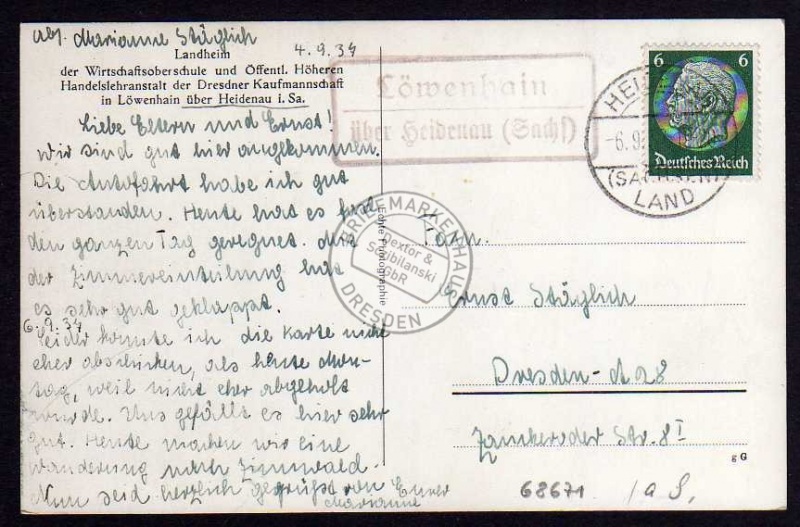 Abs. Marianne Stäglich
4.9.37
Landheim
der Wirtschaftsoberschule und Öffentl. Höheren
Handelslehranstalt der Dresdner Kaufmannschaft
in Löwenhain über Heidenau i. Sa.
Löwenhain
über Heidenau (Sachs)
Liebe Eltern und Ernst!
Wir sind gut hier angekommen.
Die Autofahrt habe ich gut
überstanden. Heute hat es fast
den ganzen Tag geregnet. Mit
der Zimmereinteilung hat
es sehr gut geklappt.
6.9.37
Leider konnte ich die Karte nicht
eher abschicken, als heute Mon-
tag, weil nicht eher abgeholt
wurde. Uns gefällt es hier sehr
gut. Heute machen wir eine
Wanderung nach Zinnwald.
Nun seid herzlich gegrüßt von Eurer
Marianne
Echte Photographie
BRIEFMARKENHAUS
Dextor &
Scibilanski
GbR
DRESDEN
6 6
Deutsches Reich
-6.9
(SACHSEN)
LAND
Fam.
Ernst Stäglich
Dresden-A 28
Zaukeroder Str. 8 I
g G
68671